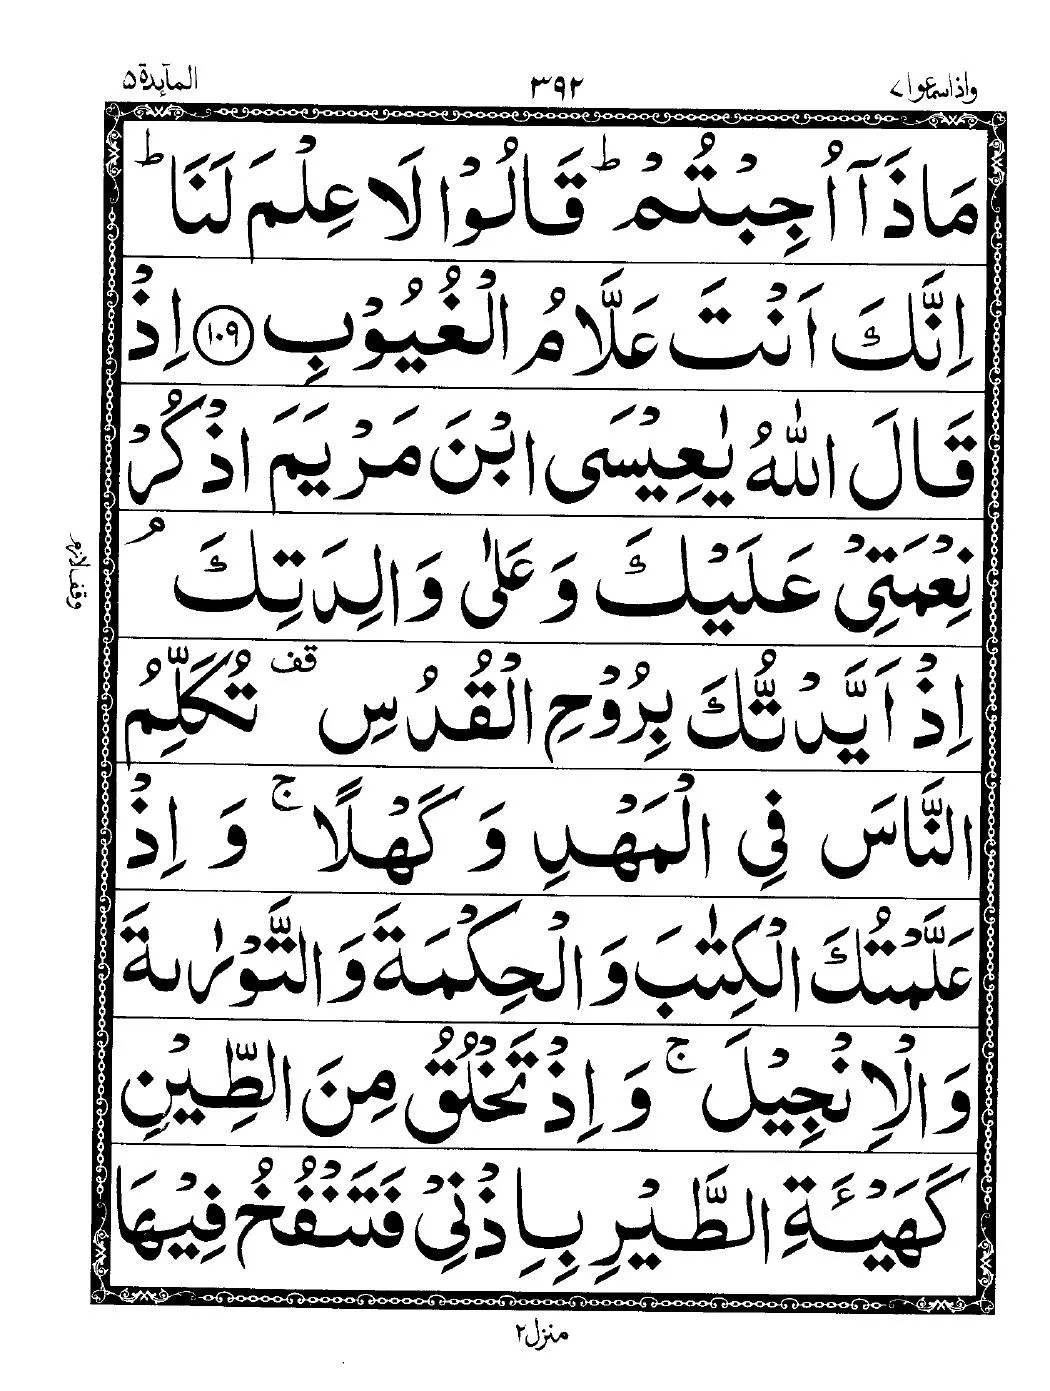 واذاسمعوا ٧
٣٩٢
المآىِٕدة ٥
مَاذَاۤ اُجِبْتُمْ ؕ قَالُوْا لَا عِلْمَ لَنَا ؕ
اِنَّكَ اَنْتَ عَلَّامُ الْغُيُوْبِ ۝١٠٩ اِذْ
قَالَ اللّٰهُ يٰعِيْسَى ابْنَ مَرْيَمَ اذْكُرْ
نِعْمَتِيْ عَلَيْكَ وَ عَلٰى وَالِدَتِكَ ۘ
اِذْ اَيَّدْتُّكَ بِرُوْحِ الْقُدُسِ قف تُكَلِّمُ
النَّاسَ فِي الْمَهْدِ وَ كَهْلًا ۚ وَ اِذْ
عَلَّمْتُكَ الْكِتٰبَ وَ الْحِكْمَةَ وَ التَّوْرٰىةَ
وَ الْاِنْجِيْلَ ۚ وَ اِذْ تَخْلُقُ مِنَ الطِّيْنِ
كَهَيْـَٔةِ الطَّيْرِ بِاِذْنِيْ فَتَنْفُخُ فِيْهَا
وقف لازم
منزل ٢